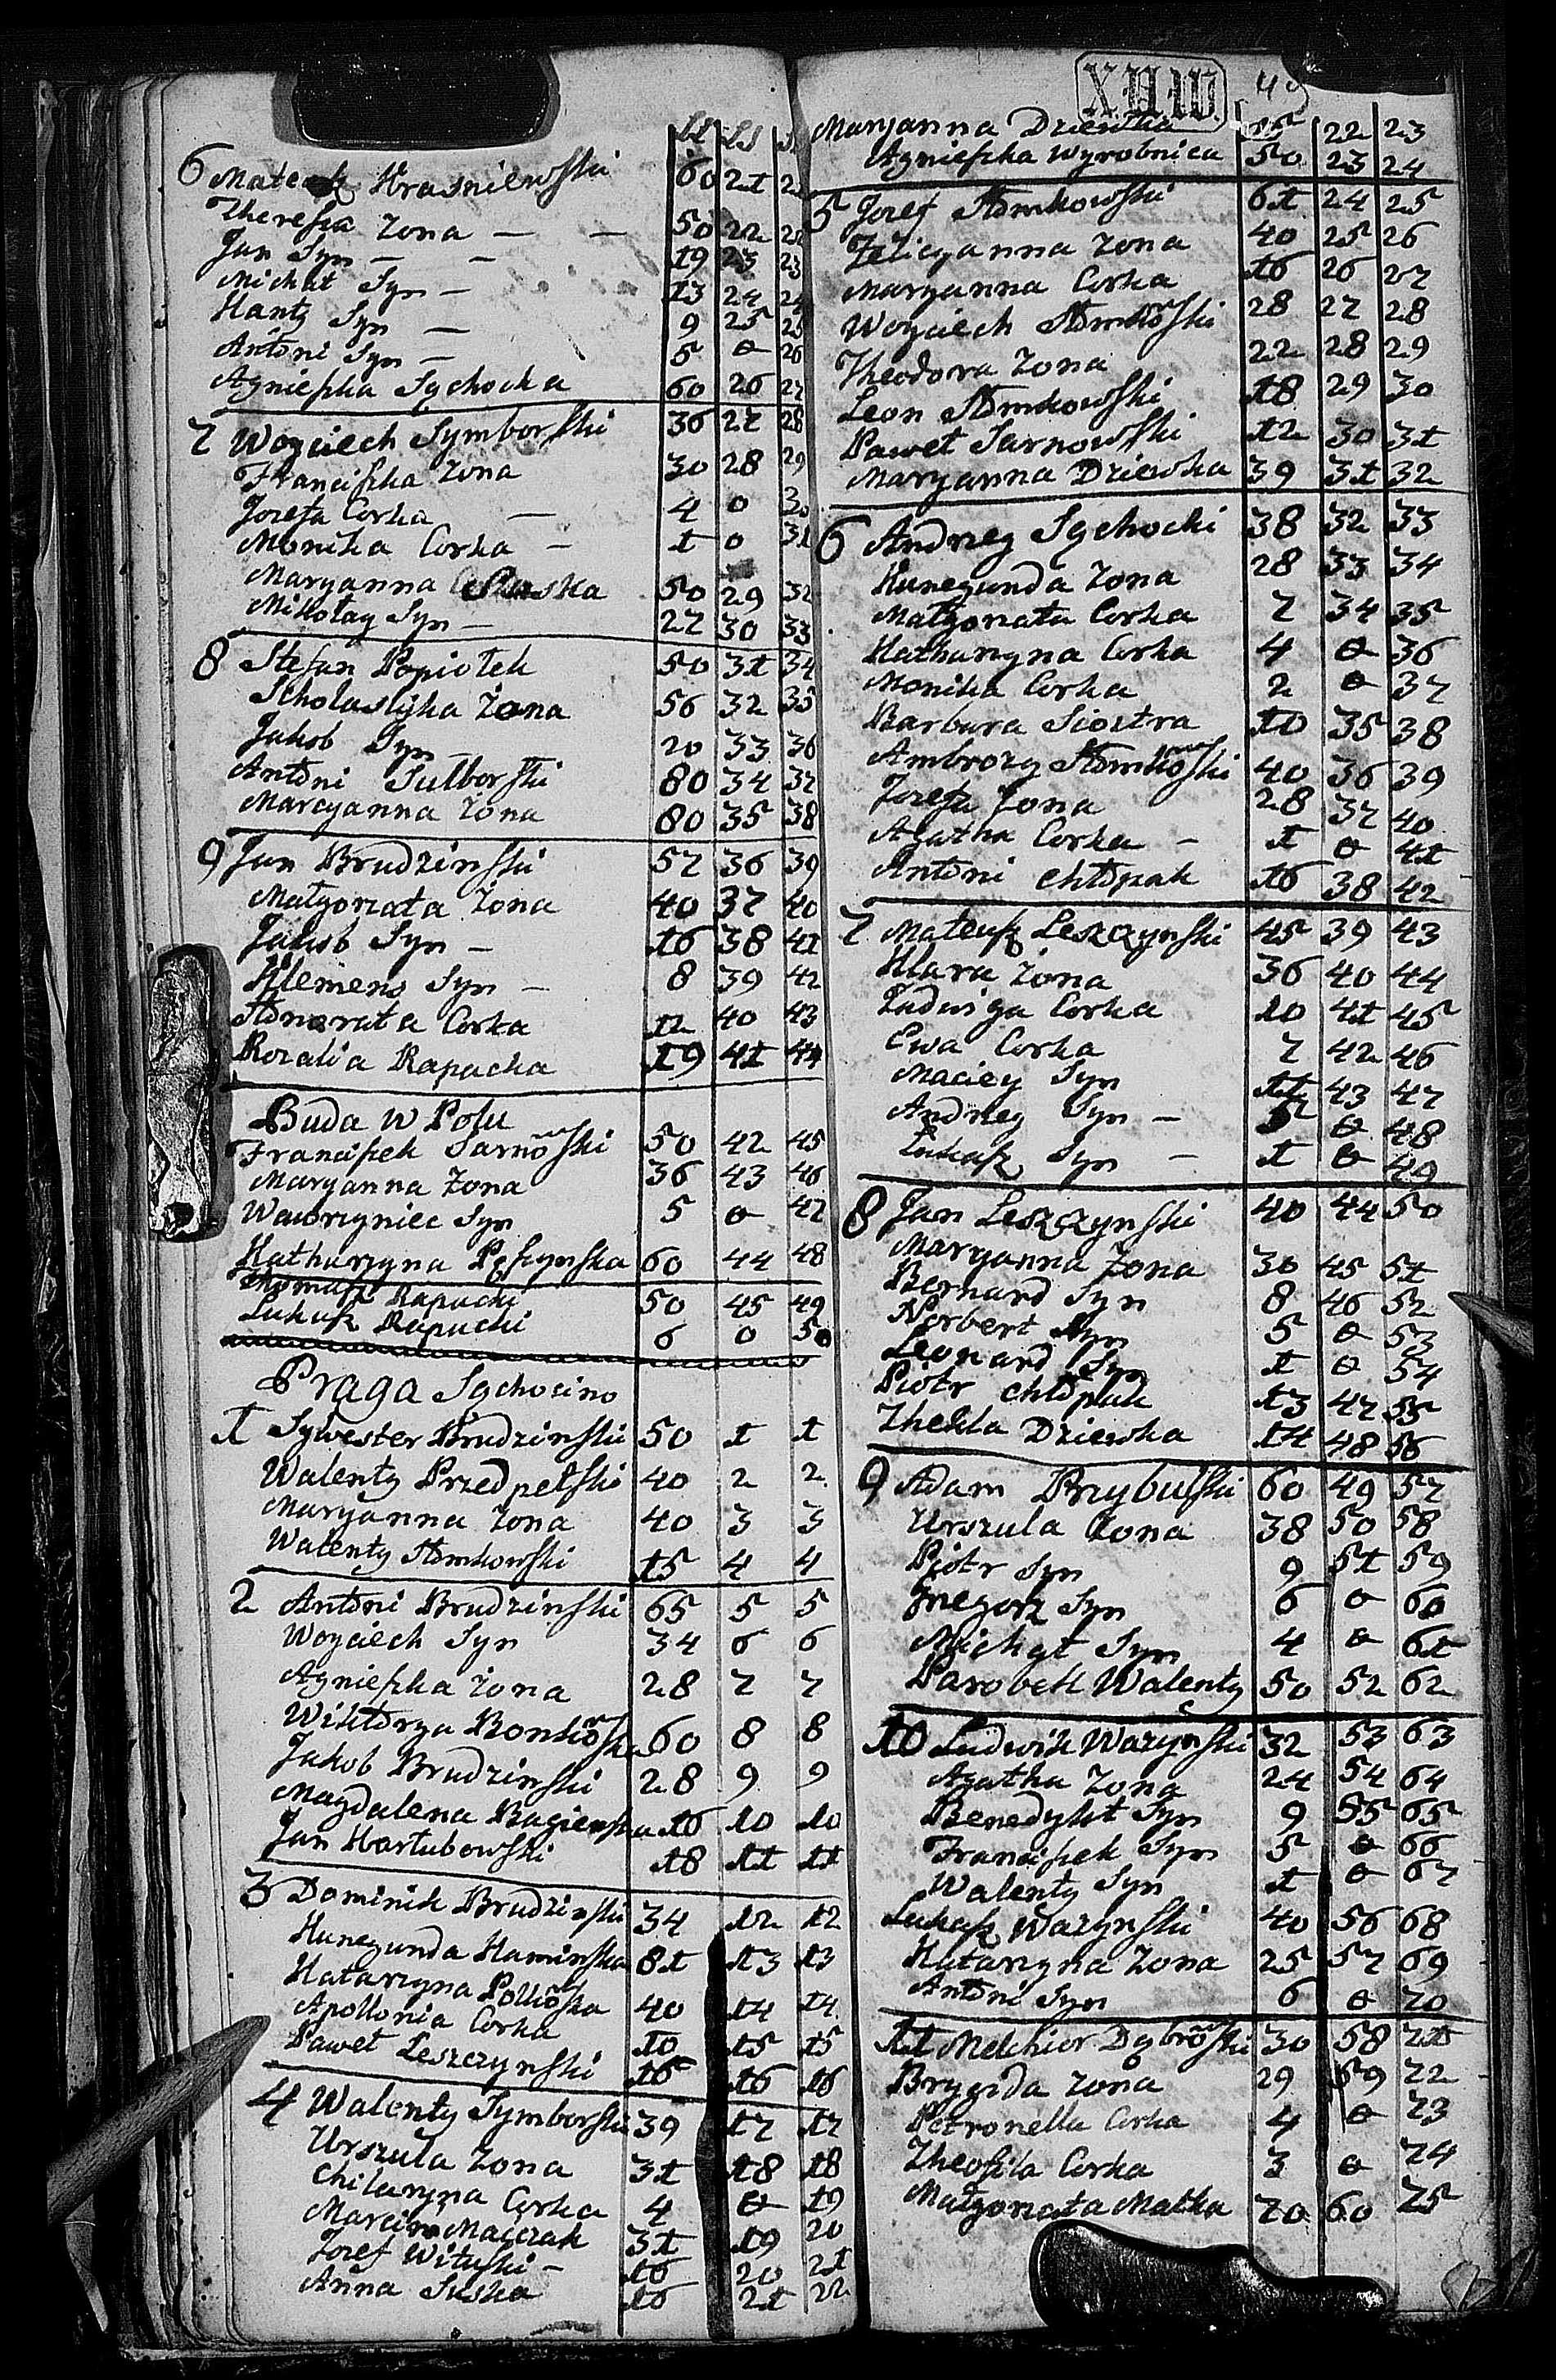 lt LS
6 Mateusz Krasniewski 60 21
Theresa Zona — — 50 22 22
Jan Syn — — 19 23 23
Michał Syn — 13 24 24
Kanty Syn — 9 25 25
Antoni Syn — 5 0 26
Agnieszka Sychocka 60 26 27
7 Woyciech Symborski 36 27 28
Franciszka Zona 30 28 29
Jozefa Corka — 4 0 30
Monika Corka — 1 0 31
Maryanna 50 29 32
Mikołay Syn — 27 30 33
8 Stefan Popiołek 50 31 34
Scholastyka Zona 56 32 35
Jakob Syn 20 33 36
Antoni Sulborski 80 34 37
Marcyanna Zona 80 35 38
9 Jan Brudzinski 57 36 39
Małgorzata Zona 40 37 40
Jakob Syn — 16 38 41
Klemens Syn — 8 39 42
Honorata Corka 12 40 43
Rozalia Rapacka 19 41 44
Buda w Polu
Franciszek Sarnowski 50 42 45
Maryanna Zona 36 43 46
Wawrzyniec Syn 5 0 47
Katharzyna Pęszynska 60 44 48
Thomasz Rapacki 50 45 49
Łukasz Rapacki 6 0 50
Praga Sychocino
1 Sylwester Brudzinski 50 1 1
Walenty Przedpełski 40 2 2
Maryanna Zona 40 3 3
Walenty Slomkowski 15 4 4
2 Antoni Brudzinski 65 5 5
Woyciech Syn 34 6 6
Agnieszka Zona 28 7 7
Wiktorya Bonkowska 60 8 8
Jakob Brudzinski 28 9 9
Magdalena Bagienska 16 10 10
Jan Karłubowski 18 11 11
3 Dominik Brudzinski 34 12 12
Kunegunda Kaminska 81 13 13
Katarzyna Polkowska 40 14 14
Apollonia Corka 10 15 15
Paweł Leszczynski 16 16 16
4 Walenty Symborski 39 17 17
Urszula Zona 31 18 18
Chilaryna Corka 4 0 19
Marcin Maiczak 31 19 20
Jozef Wituski — 16 20 21
Anna Suska 16 21 22
X.II.W. 49
Maryanna Dziewka 22 23
Agnieszka Wyrobnica 50 23 24
5 Jozef Slomkowski 61 24 25
Felicyanna Zona 40 25 26
Maryanna Corka 16 26 27
Woyciech Slomkowski 28 27 28
Theodora Zona 22 28 29
Leon Slomkowski 18 29 30
Paweł Sarnowski 12 30 31
Maryanna Dziewka 39 31 32
6 Andrzey Sychocki 38 32 33
Kunegunda Zona 28 33 34
Małgorzata Corka 7 34 35
Katharzyna Corka 4 0 36
Monika Corka 2 0 37
Barbara Siostra 10 35 38
Ambrozy Slomkowski 40 36 39
Jozefa Zona 28 37 40
Agatha Corka — 1 0 41
Antoni chłopak 16 38 42
7 Mateusz Leszczynski 45 39 43
Klara Zona 36 40 44
Ludwiga Corka 10 41 45
Ewa Corka 7 42 46
Maciey Syn 11 43 47
Andrzey Syn — 5 0 48
Łukasz Syn — 1 0 49
8 Jan Leszczynski 40 44 50
Maryanna Zona 30 45 51
Bernard Syn 8 46 52
Norbert Syn 5 0 53
Leonard Syn 1 0 54
Piotr chłopak 13 47 55
Thekla Dziewka 14 48 56
9 Adam Przybulski 60 49 57
Urszula Zona 38 50 58
Piotr Syn 9 51 59
Grzegorz Syn 6 0 60
Michał Syn 4 0 61
Parobek Walenty 50 52 62
10 Ludwik Wazynski 32 53 63
Agatha Zona 24 54 64
Benedykt Syn 9 55 65
Franciszek Syn 5 0 66
Walenty Syn 1 0 67
Łukasz Wazynski 40 56 68
Katarzyna Zona 25 57 69
Antoni Syn 6 0 70
11 Melchior Dąbrowski 30 58 71
Brygida Zona 29 59 72
Petronella Corka 4 0 73
Theofila Corka 3 0 74
Małgorzata Matka 70 60 75